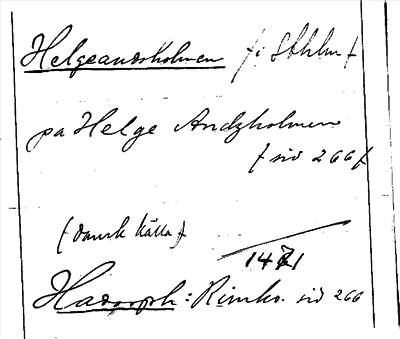 Helgeandsholmen f i Sthlm f
pa Helge Andzholmen
f sid 266 f
(dansk källa)
1471
Hadorph: Rimkr. sid 266